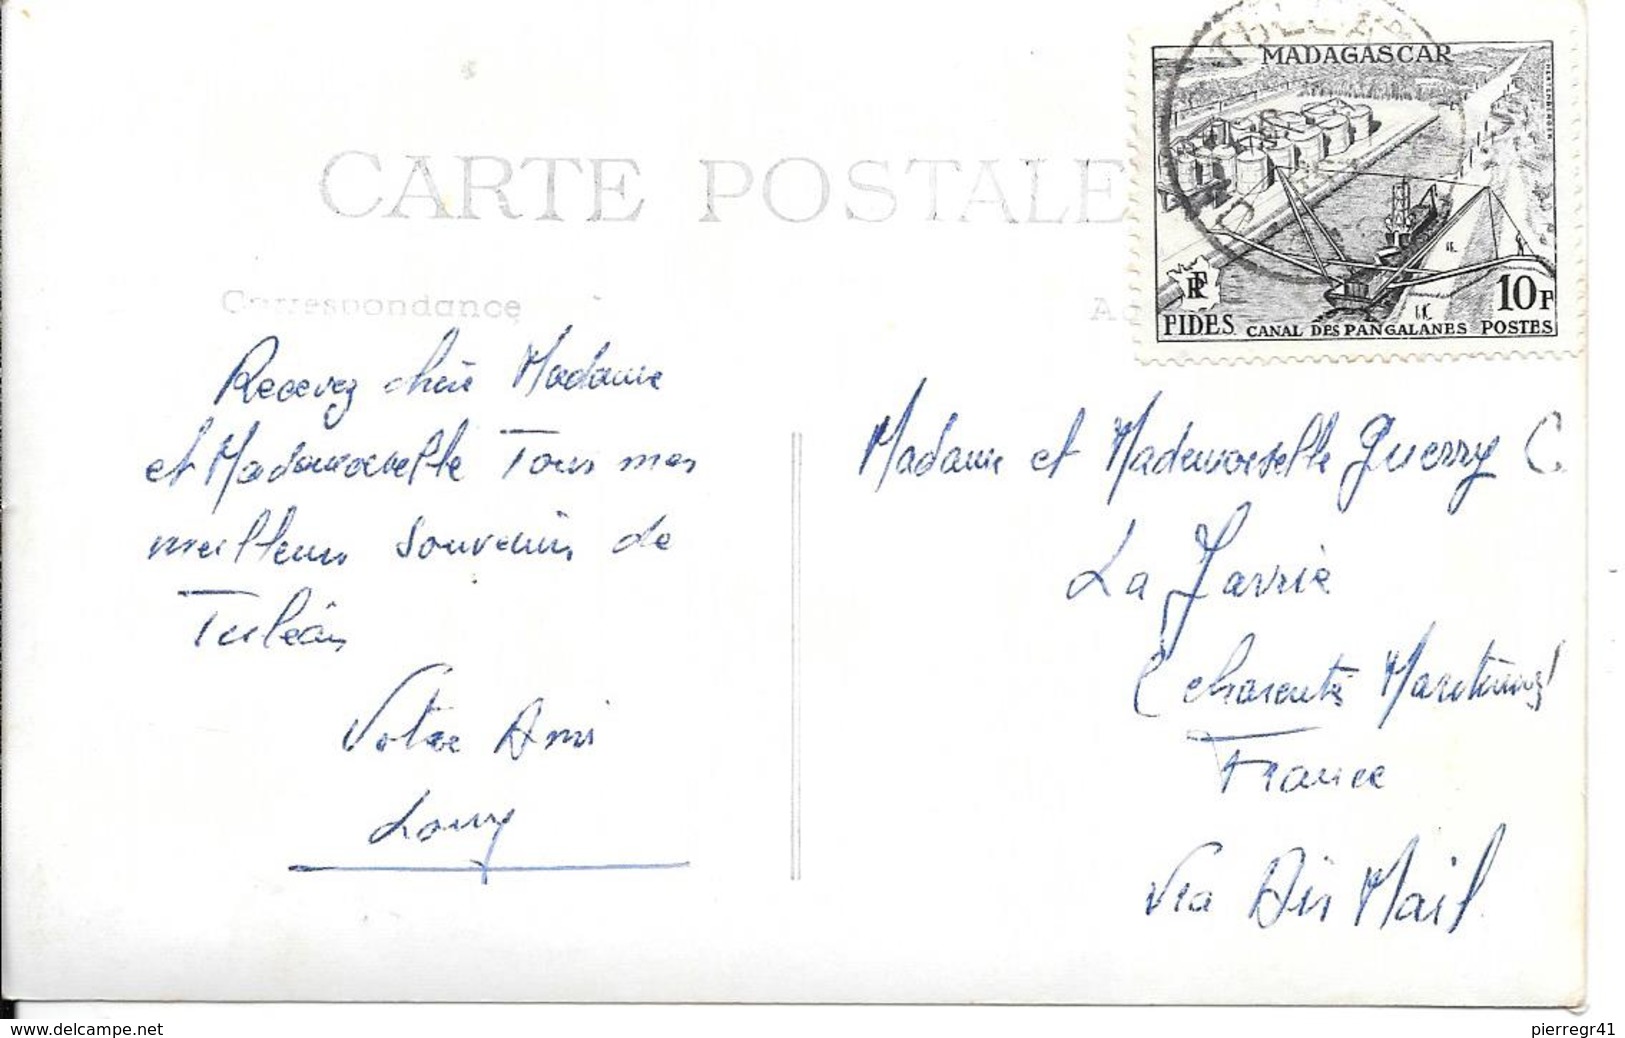 CARTE POSTALE
Correspondance
Recevez chère Madame
et Mademoiselle Tous mes
meilleurs souvenirs de
Tuléar
Votre Ami
MADAGASCAR
RF
10F
FIDES CANAL DES PANGALANES POSTES
TULEAR
Madame et Mademoiselle Guerry C.
La Jarrie
(Charente Maritime)
France
Via Air Mail
www.delcampe.net
pierregr41